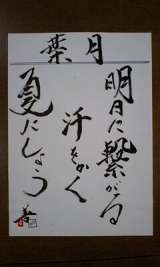 葉月
明日に繋がる
汗をかく
夏にしよう